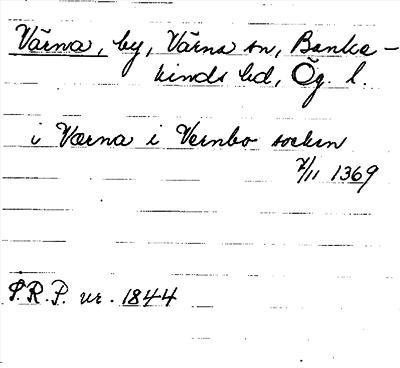 Värna, by, Värna sn, Banke-
kinds hd, Ög. l.
iVærna i Vernbo sockn
7/11 1369
S.R.P. nr. 1844